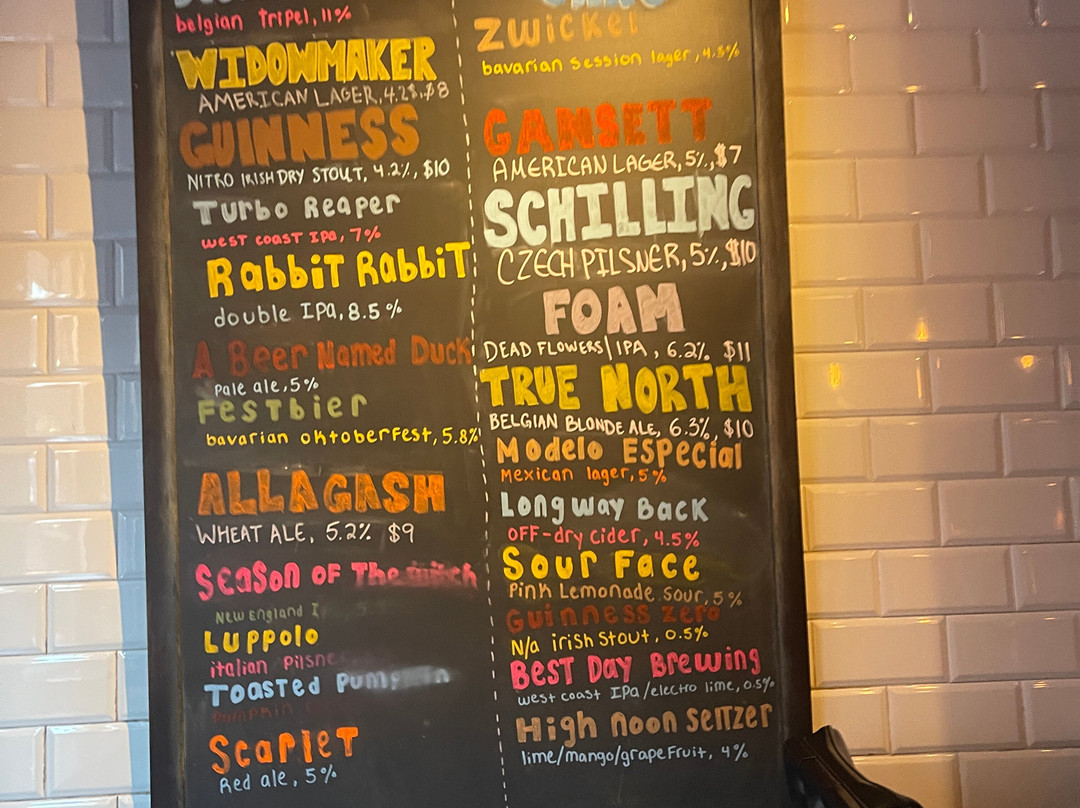 belgian Tripel, 11%
WIDOWMAKER
AMERICAN LAGER, 4.2%, $8
GUINNESS
NITRO IRISH DRY STOUT, 4.2%, $10
Turbo Reaper
west coast IPA, 7%
RabbiT RabbiT
double IPA, 8.5%
A Beer Named Duck
Pale ale, 5%
FesTbier
bavarian oktoberfest, 5.8%
ALLAGASH
WHEAT ALE, 5.2% $9
Season of The
New England
Luppolo
italian
Toasted
Pumpkin
Scarlet
Red ale, 5%
Zwickel
bavarian session lager, 4.5%
GANSETT
AMERICAN LAGER, 5%, $7
SCHILLING
CZECH PILSNER, 5%, $10
FOAM
DEAD FLOWERS| IPA, 6.2% $11
TRUE NORTH
BELGIAN BLONDE ALE, 6.3%, $10
Modelo Especial
Mexican lager, 5%
Longway Back
OFF-dry cider, 4.5%
Sour Face
Pink Lemonade sour, 5%
Guinness zero
N/a irish Stout, 0.5%
BEST DAY Brewing
west coast IPA/electro lime, 0.5%
High noon SelTzer
lime/mango/grapefruit, 4%